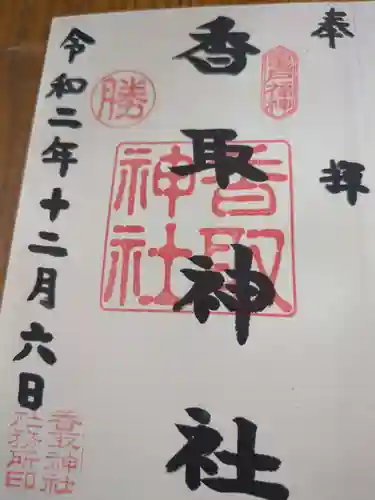 奉拝
香取神社
令和二年十二月六日
勝
香取神社
香取神社
社務所印